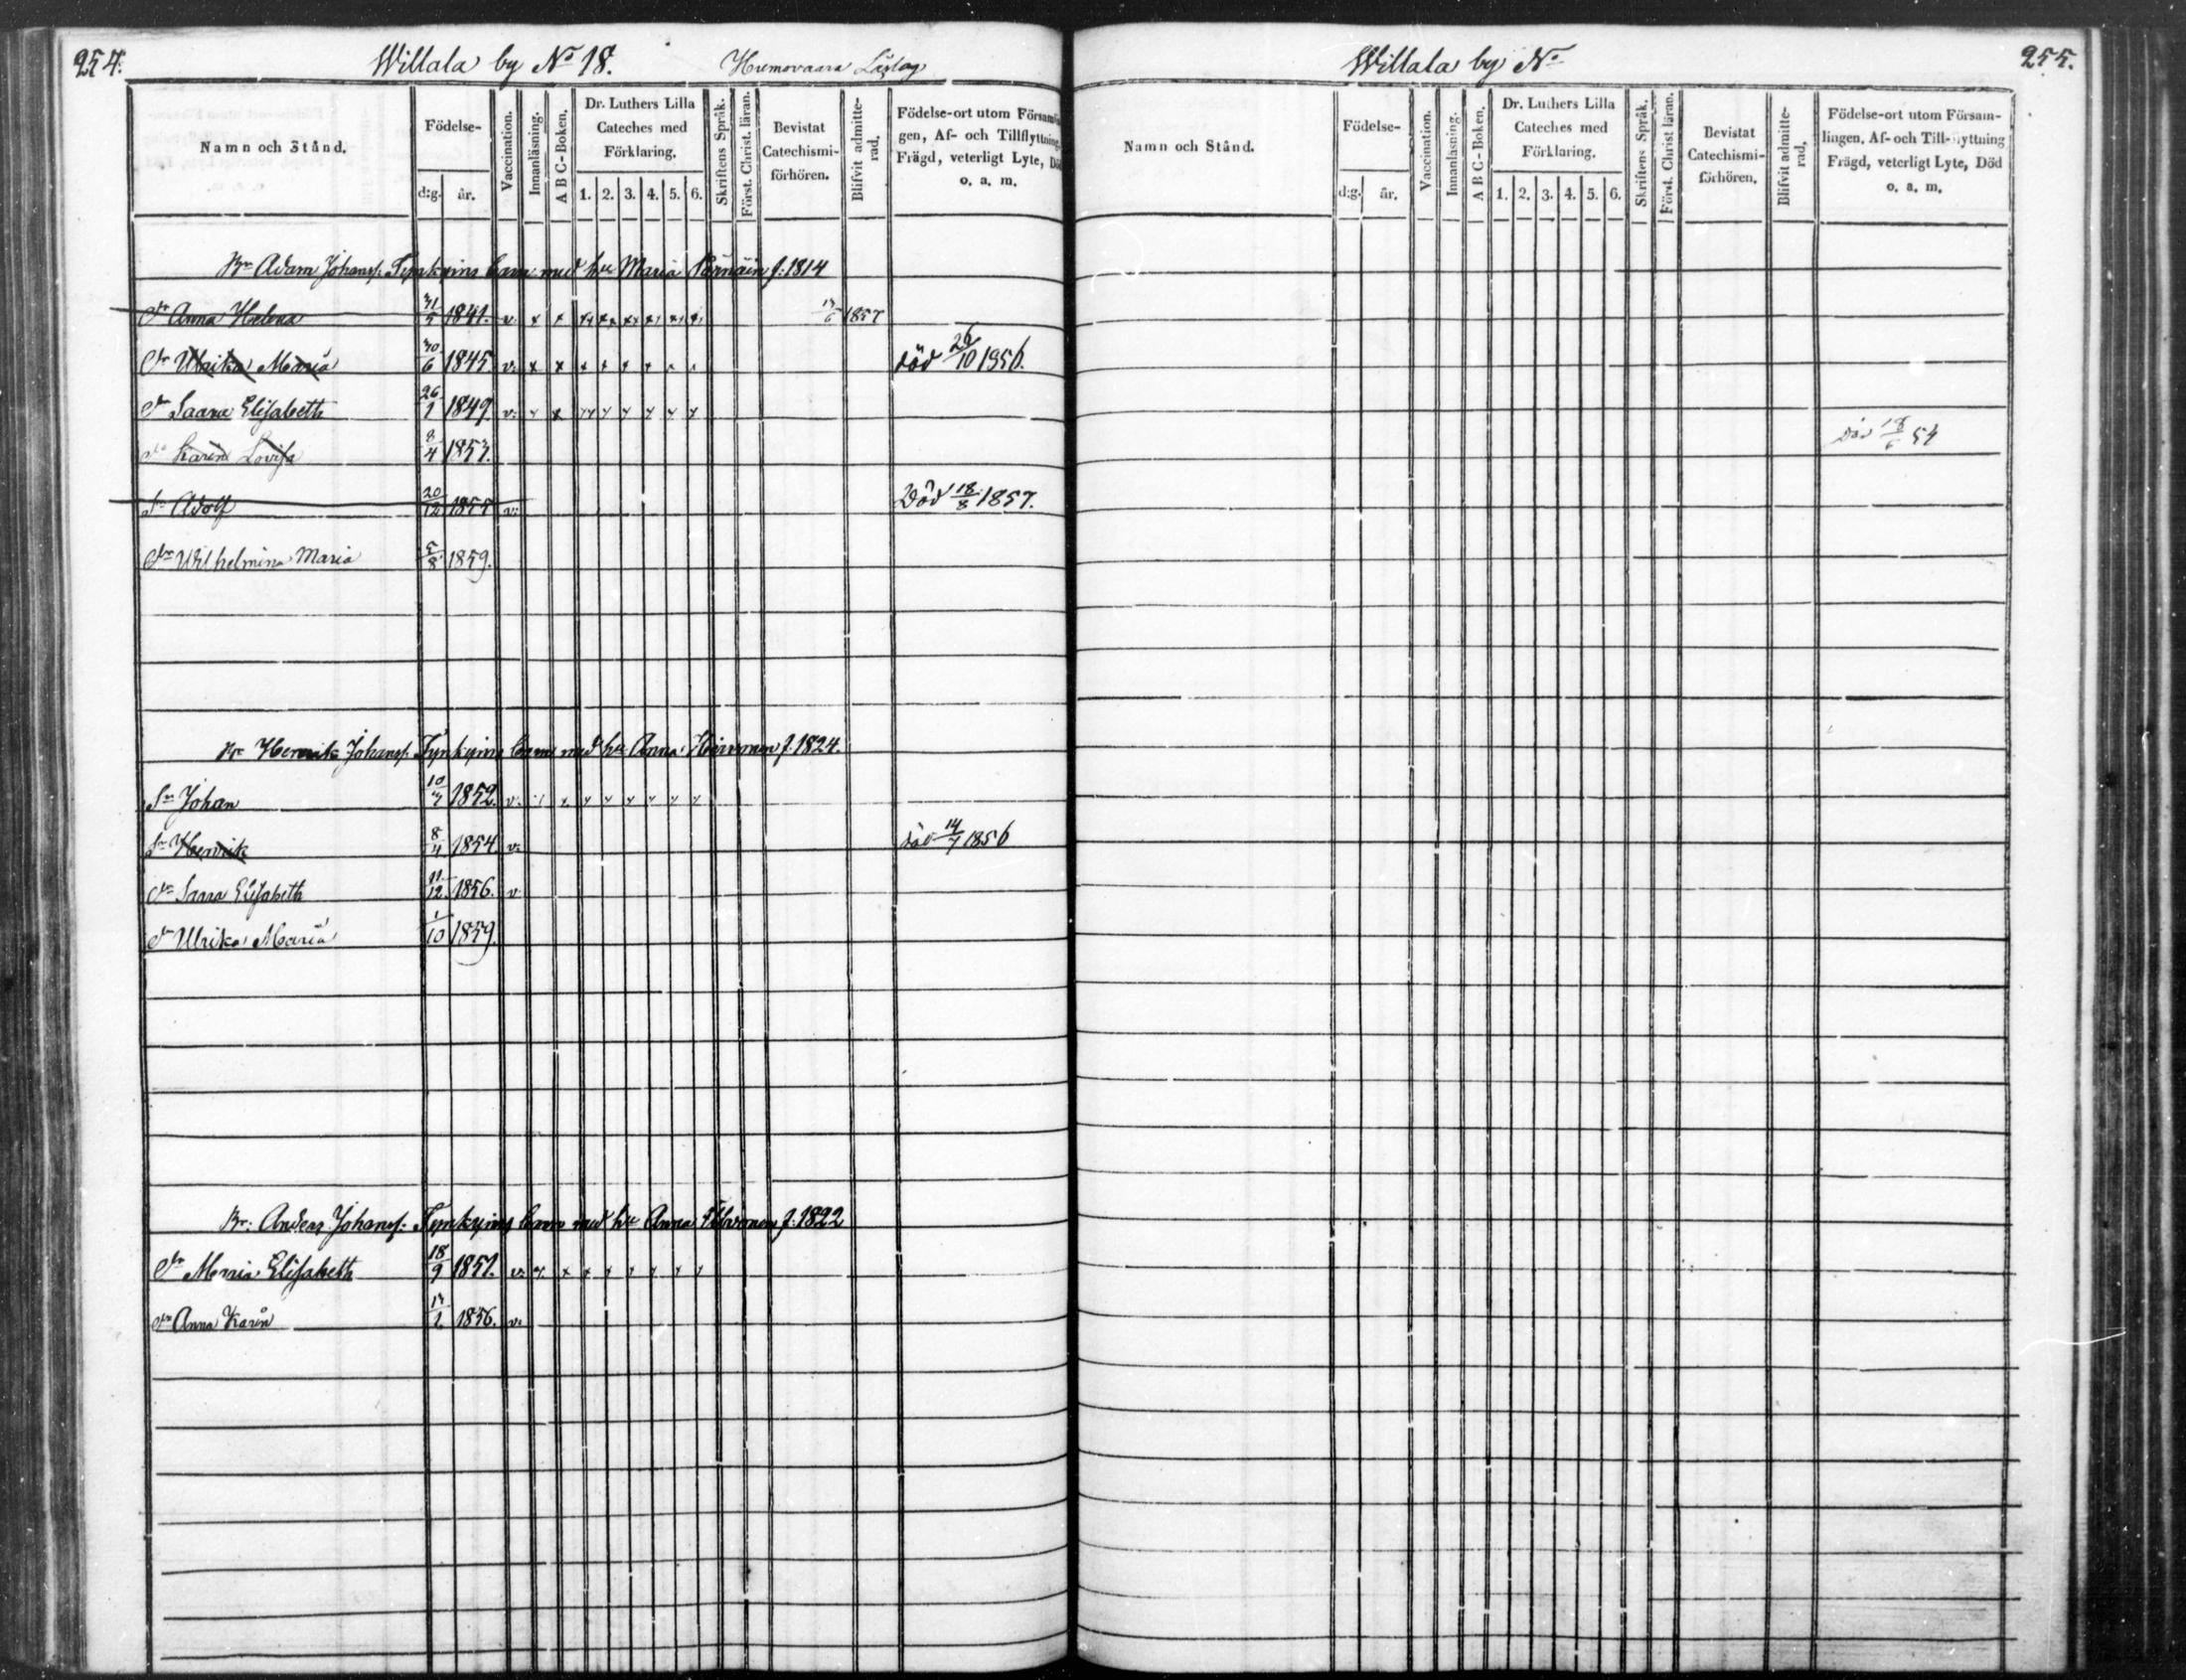 254.
Willala by No 18. Humovaara Läslag
Namn och Stånd.
Födelse-
d:g. år.
Vaccination.
Innanläsning.
A B C-Boken.
Dr. Luthers Lilla Cateches med Förklaring.
1. 2. 3. 4. 5. 6.
Skriftens Språk.
Först. Christ. läran.
Bevistat Catechismi-förhören.
Blifvit admitte-rad,
Födelse-ort utom Försam
gen, Af- och Tillflyttning,
Frägd, veterligt Lyte, Död
o. a. m.
Br Adam Johanss. barn med hu Maria f. 1814
Dr Anna Helena 31/5 1841. v: x x 1857
Dr Ulrika Maria 30/6 1845 v: x x x x x x död 26/10 1856.
Dr Saara Elisabeth 26/1 1849. v:
Dr Karin Lovisa 8/4 1853.
Sn Adolf 20/12 1855 v: Död 18/8 1857.
Dr Wilhelmina Maria 5/8 1859.
Br Henrik Johanss. barn med hu Anna Hirvonen f. 1824.
Sn Johan 10/3 1852. v:
Sn Henrik 8/4 1854. v: död 14/7 1856
Dr Saara Elisabeth 11/12 1856. v:
Dr Ulrika Maria 1/10 1859.
Br: Anders Johanss: barn med hu Anna f. 1822
Dr Maria Elisabeth 18/9 1851. v:
Dr Anna Karin 1856. v:
255.
Willala by No
Namn och Stånd.
Födelse-
d:g. år.
Vaccination.
Innanläsning.
A B C-Boken.
Dr. Luthers Lilla Cateches med Förklaring.
1. 2. 3. 4. 5. 6.
Skriftens Språk.
Först. Christ läran.
Bevistat Catechismi-förhören,
Blifvit admitte-rad,
Födelse-ort utom Försam-
lingen, Af- och Till-flyttning
Frägd, veterligt Lyte, Död
o. a. m,
död 18/6 54